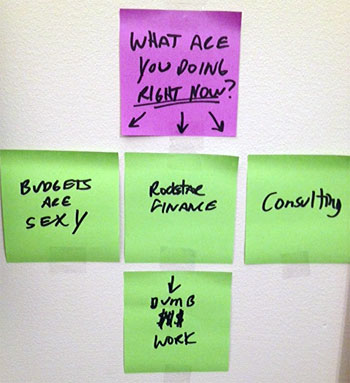 WHAT ARE
YOU DOING
RIGHT NOW?
BUDGETS
ARE
SEXY
Rockstar
FINANCE
Consulting
DUMB
$$$
WORK